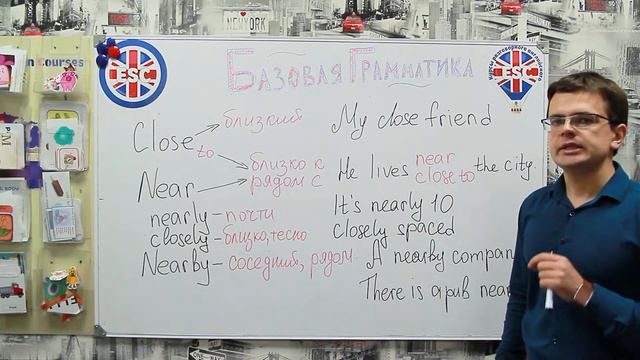 NEW YORK
n Courses
ESC
Базовая Грамматика
ESC
Close
to
близкий
My close friend
близко к
рядом с
He lives near the city.
close to
Near
nearly - почти
It's nearly 10
closely - близко, тесно
Closely spaced
Nearby - соседний, рядом
A nearby compan
There is a pub near